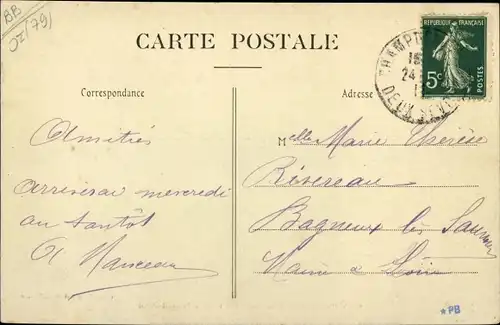 BB
OZ(79)
CARTE POSTALE
REPUBLIQUE FRANÇAISE
5c
POSTES
CHAMPD
24
DEUX-SEVRES
Correspondance
Adresse
Amitiés
arriverai mercredi
au tantôt
Melle Marie Thérèse
Bagneux lès Saumur
Maine & Loire
*PB